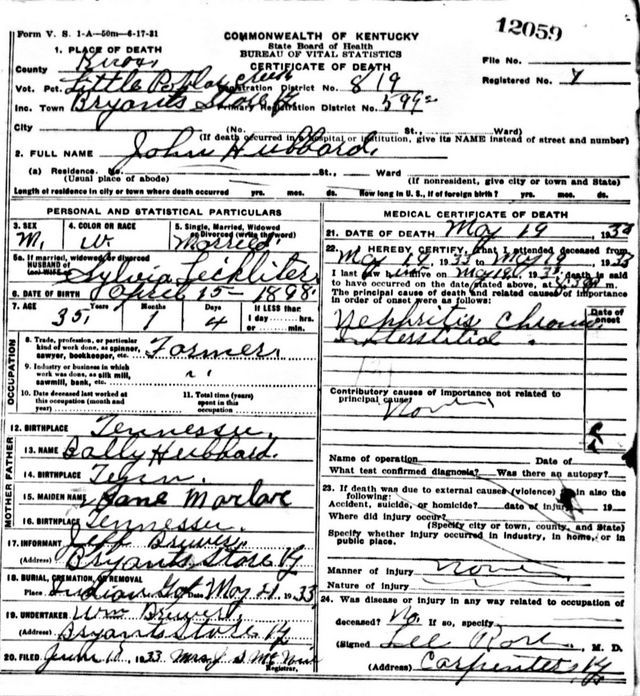 Form V. S. 1-A—50m—6-17-31
12059
COMMONWEALTH OF KENTUCKY
State Board of Health
BUREAU OF VITAL STATISTICS
CERTIFICATE OF DEATH
1. PLACE OF DEATH
County Knox
File No.
Vot. Pct. Little Poplar Creek Registration District No. 819
Registered No. 7
Inc. Town Bryants Store Ky Primary Registration District No.
City (No. St., Ward)
(If death occurred in a hospital or institution, give its NAME instead of street and number)
2. FULL NAME John Hubbard
(a) Residence. No. St., Ward
(Usual place of abode) (If nonresident, give city or town and State)
Length of residence in city or town where death occurred yrs. mos. ds. How long in U. S., if of foreign birth? yrs. mos. ds.
PERSONAL AND STATISTICAL PARTICULARS
3. SEX M.
4. COLOR OR RACE W.
5. Single, Married, Widowed or Divorced (write the word) Married
5a. If married, widowed or divorced
HUSBAND of
(or) WIFE of Sylvia Leckliter
6. DATE OF BIRTH April 15 1898
7. AGE 35 Years 1 Months 4
IF LESS than
1 day hrs.
or min.
OCCUPATION
8. Trade, profession, or particular
kind of work done, as spinner,
sawyer, bookkeeper, etc. Farmer
9. Industry or business in which
work was done, as silk mill,
sawmill, bank, etc.
10. Date deceased last worked at
this occupation (month and
year)
11. Total time (years)
spent in this
occupation
12. BIRTHPLACE Tennessee
FATHER
13. NAME Hubbard
14. BIRTHPLACE Tenn.
MOTHER
15. MAIDEN NAME Jane
16. BIRTHPLACE Tennessee
17. INFORMANT Jeff Brewer
(Address) Bryants Store Ky
18. BURIAL, CREMATION, OR REMOVAL
Place Indian Gap Date May 21 1933
19. UNDERTAKER Wm Brewer
(Address) Bryants Store Ky
20. FILED June 1933 Mrs
Registrar.
MEDICAL CERTIFICATE OF DEATH
21. DATE OF DEATH May 19, 1933
22. I HEREBY CERTIFY, That I attended deceased from
May 1933 to May 19, 1933
I last saw alive on May 1933 death is said
to have occurred on the date stated above, at m.
The principal cause of death and related causes of importance
in order of onset were as follows:
Date of
onset
Nephritis Chronic
Interstitial
Contributory causes of importance not related to
principal cause:
None
Name of operation Date of
What test confirmed diagnosis? Was there an autopsy?
23. If death was due to external causes (violence) fill in also the
following:
Accident, suicide, or homicide? date of injury 19
Where did injury occur?
(Specify city or town, county, and State)
Specify whether injury occurred in industry, in home, or in
public place.
Manner of injury None
Nature of injury
24. Was disease or injury in any way related to occupation of
deceased? No. If so, specify
(Signed) Lee M. D.
(Address) Carpenter Ky